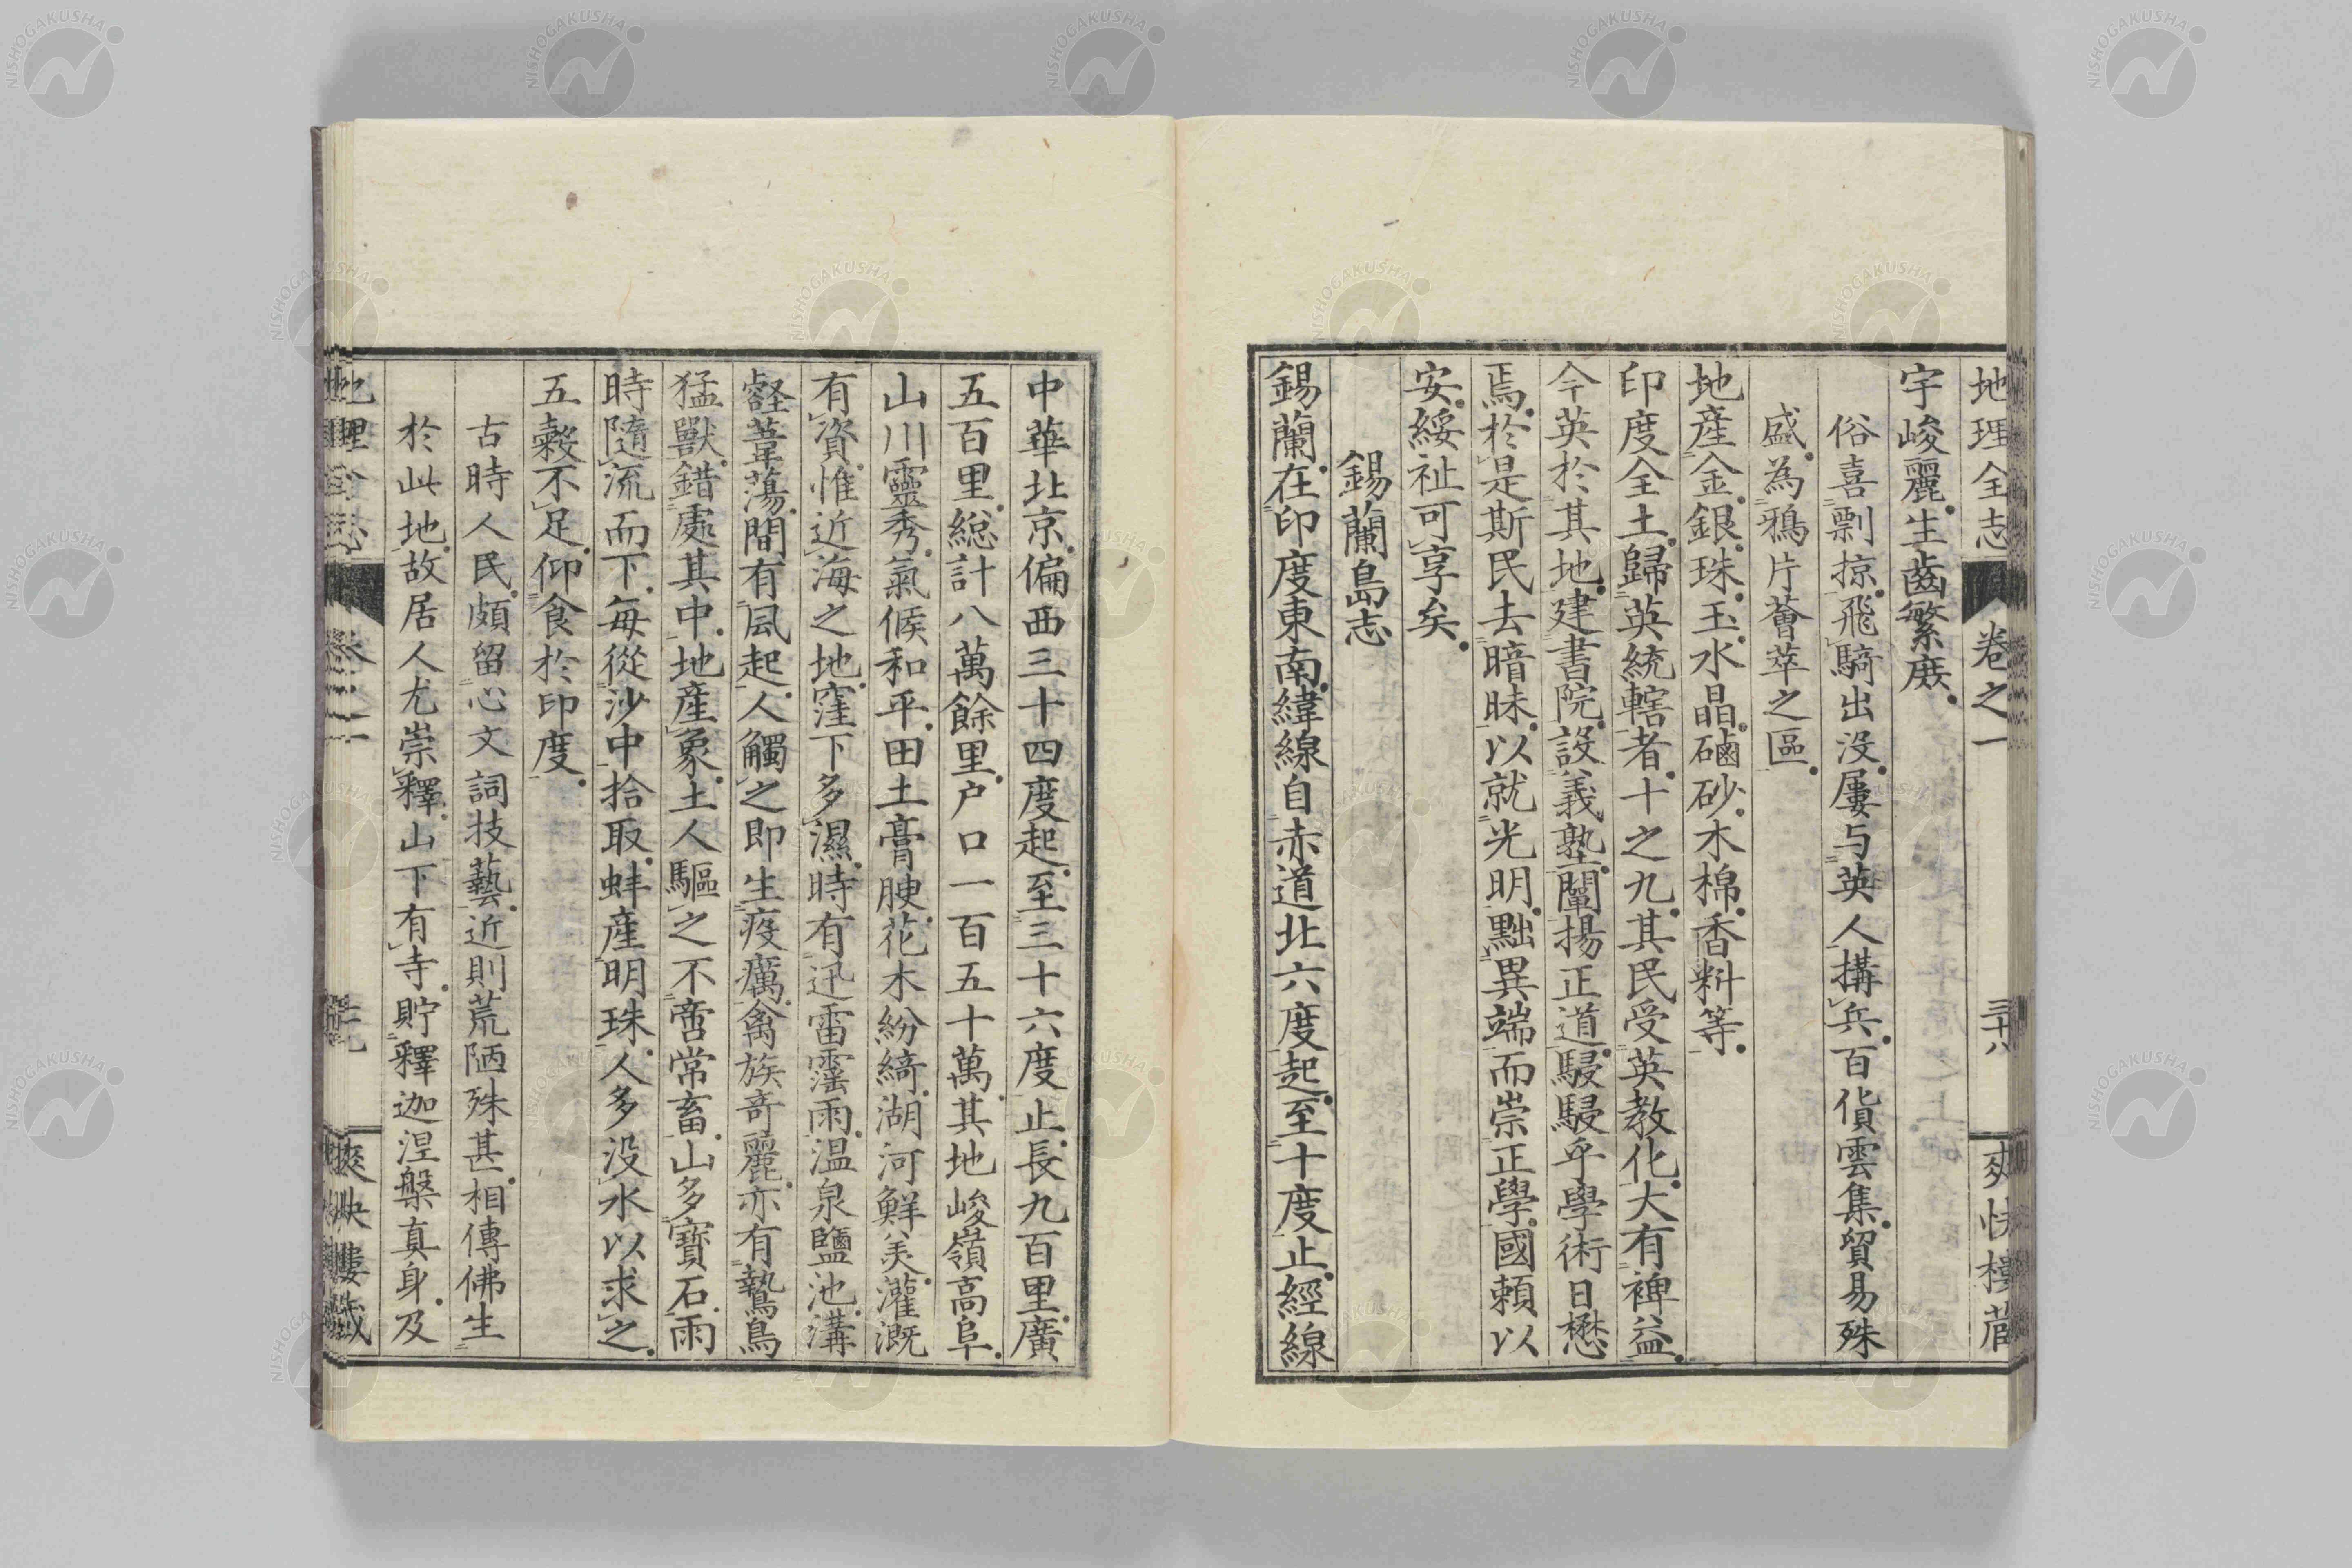 地理全志 卷之一 三十八 爽快樓藏
宇峻麗。生齒繁庶。
俗喜剽掠。飛騎出没。屢与英人搆兵。百貨雲集。貿易殊
盛。為鴉片薈萃之區。
地產金。銀。珠。玉。水晶。磠砂。木棉。香料等。
印度全土。歸英統轄者。十之九。其民受英教化。大有裨益。
今英於其地。建書院。設義塾。闡揚正道。駸駸乎學術日懋
焉。於是斯民去暗昧。以就光明。黜異端而崇正學。國賴以
安。綏祉可享矣。
錫蘭島志
錫蘭。在印度東南。緯線自赤道北六度起。至十度止。經線
中華北京。偏西三十四度起。至三十六度止。長九百里。廣
五百里。総計八萬餘里。户口一百五十萬。其地峻嶺高阜。
山川靈秀。氣候和平。田土膏腴。花木紛綺。湖河鮮美。灌溉
有資。惟近海之地。窪下多濕。時有迅雷霪雨。温泉鹽池。溝
壑葦蕩。間有風起。人觸之即生疫癘。禽族奇麗。亦有鷙鳥
猛獸。錯處其中。地產象。土人驅之不啻常畜。山多寶石。雨
時隨流而下。每從沙中拾取。蚌產明珠。人多没水以求之。
五穀不足。仰食於印度。
古時人民。頗留心文詞技藝。近則荒陋殊甚。相傳佛生
於此地。故居人尤崇釋。山下有寺。貯釋迦涅槃真身。及
地理全志